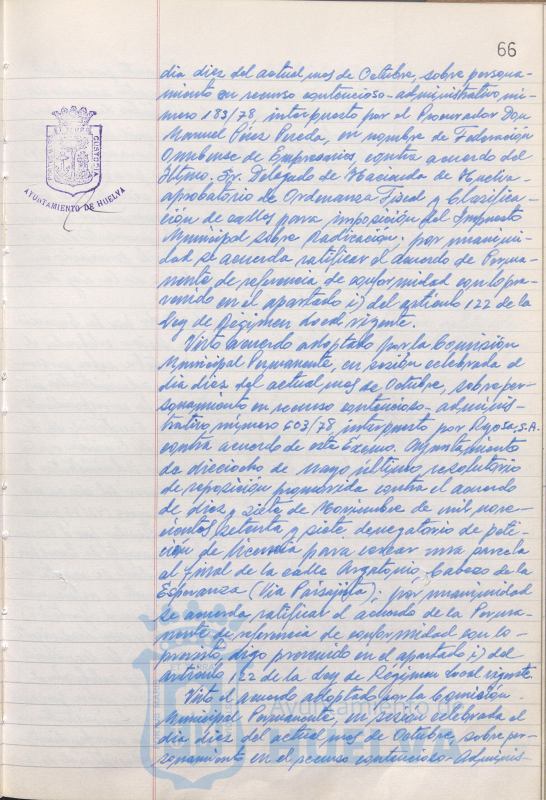 66
dia diez del actual mes de Octubre, sobre persona-
miento en recurso contencioso-administrativo nú-
mero 183/78, interpuesto por el Procurador Don
Manuel Pérez Pereda, en nombre de Federación
Onubense de Empresarios, contra acuerdo del
Iltmo. Sr. Delegado de Hacienda de Huelva
aprobatorio de Ordenanza Fiscal y Clasifica-
cion de calles para imposición del Impuesto
Municipal sobre Radicación; por unanimi-
dad se acuerda ratificar el acuerdo de Perma-
nente de referencia de conformidad con lo pre-
venido en el apartado i) del articulo 122 de la
Ley de Régimen Local vigente.
Visto acuerdo adoptado por la Comisión
Municipal Permanente, en sesión celebrada el
dia diez del actual mes de Octubre, sobre per-
sonamiento en recurso contencioso-adminis-
trativo número 603/78, interpuesto por S.A.
contra acuerdo de este Excmo. Ayuntamiento
de dieciocho de mayo último resolutorio
de reposición promovida contra el acuerdo
de diez y siete de Noviembre de mil nove-
cientos setenta y siete denegatorio de peti-
ción de licencia para cercar una parcela
al final de la calle Argantonio, Cabezo de la
Esperanza (Via Paisajista); por unanimidad
se acuerda ratificar el acuerdo de la Perma-
nente de referencia de conformidad con lo
previsto, digo prevenido en el apartado i) del
articulo 122 de la Ley de Régimen Local vigente.
Visto el acuerdo adoptado por la Comisión
Municipal Permanente, en sesión celebrada el
dia diez del actual mes de Octubre, sobre per-
sonamiento en el recurso contencioso-Adminis-
AYUNTAMIENTO DE HUELVA
Ayuntamiento de
HUELVA